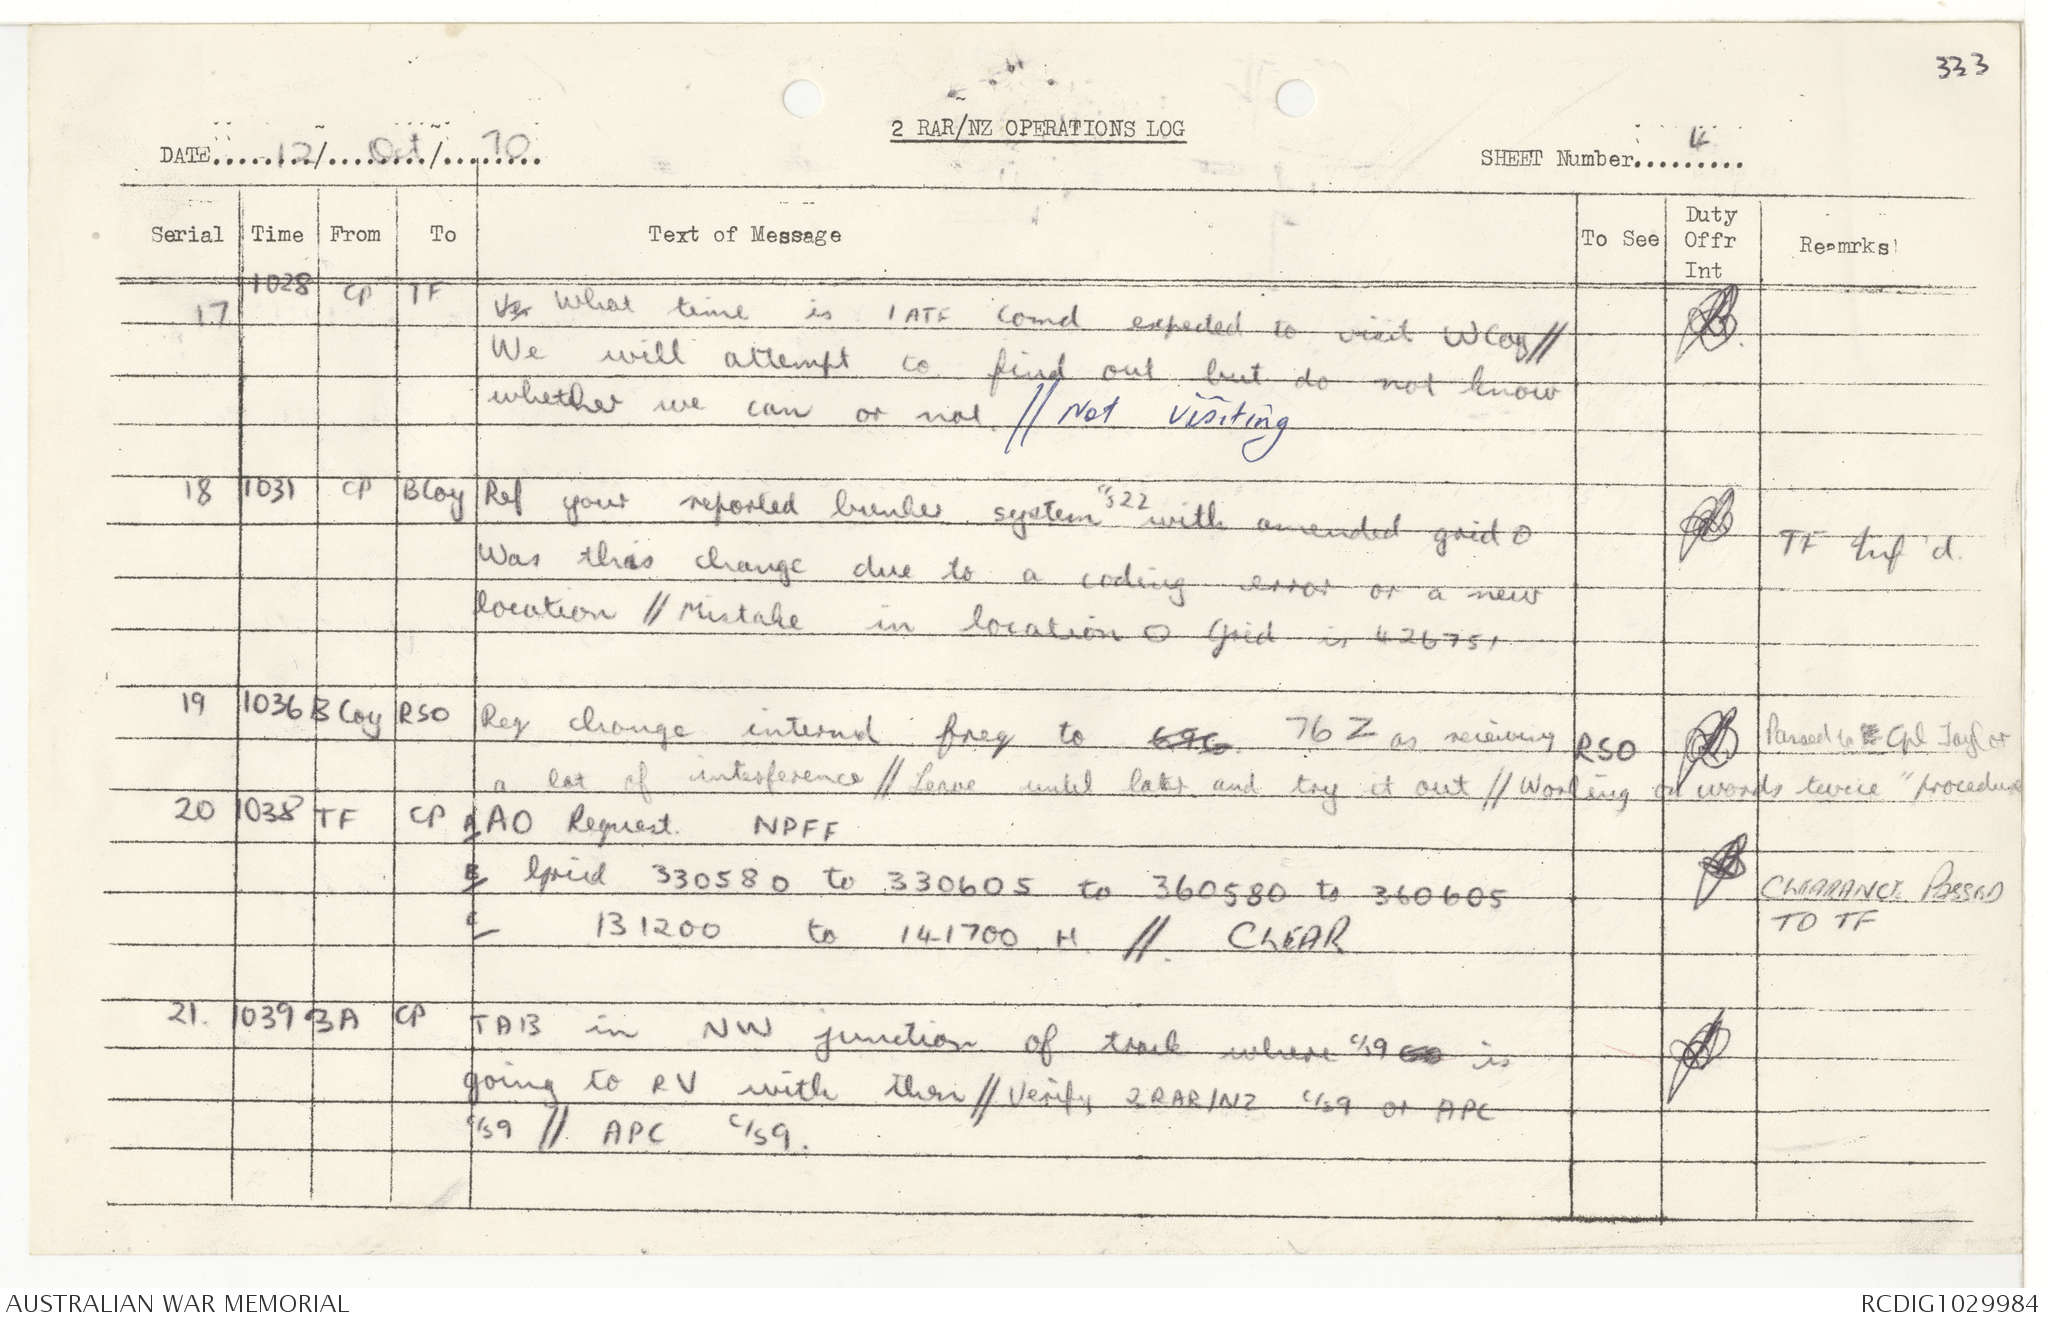 333
2 RAR/NZ OPERATIONS LOG
DATE.....12/...Oct.../...70...
SHEET Number....4.....
Serial Time From To Text of Message To See Duty Offr Int Remrks
17 1028 CP TF What time is 1 ATF Comd expected to visit W Coy //
We will attempt to find out but do not know
whether we can or not. // Not Visiting
18 1031 CP B Coy Ref your reported bunker system c/s 22 with amended grid O
Was this change due to a coding error or a new
location // Mistake in location O Grid is 426751
TF Inf'd.
19 1036 B Coy RSO Req change internal freq to 76 Z as receiving RSO Passed to Cpl Taylor
a lot of interference // Leave until later and try it out // Working on words twice "procedure
20 1038 TF CP A/ AO Request NPFF
B/ Grid 330580 to 330605 to 360580 to 360605
C/ 131200 to 141700 H // CLEAR
CLEARANCE PASSED
TO TF
21. 1039 3A CP TA13 in NW junction of track where c/s 9 is
going to RV with then // Verify 2RAR/NZ c/s 9 or APC
c/s 9 // APC c/s 9.
AUSTRALIAN WAR MEMORIAL
RCDIG1029984